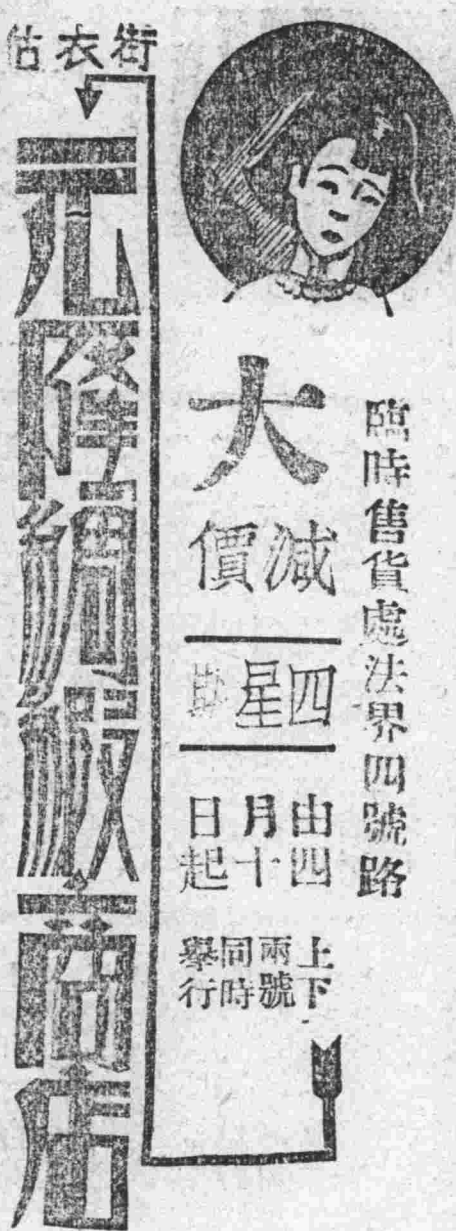 臨時售貨處法界四號路
大
減價
四星期
由四月十日起
上下兩號同時舉行
估衣街
元隆綢緞商店